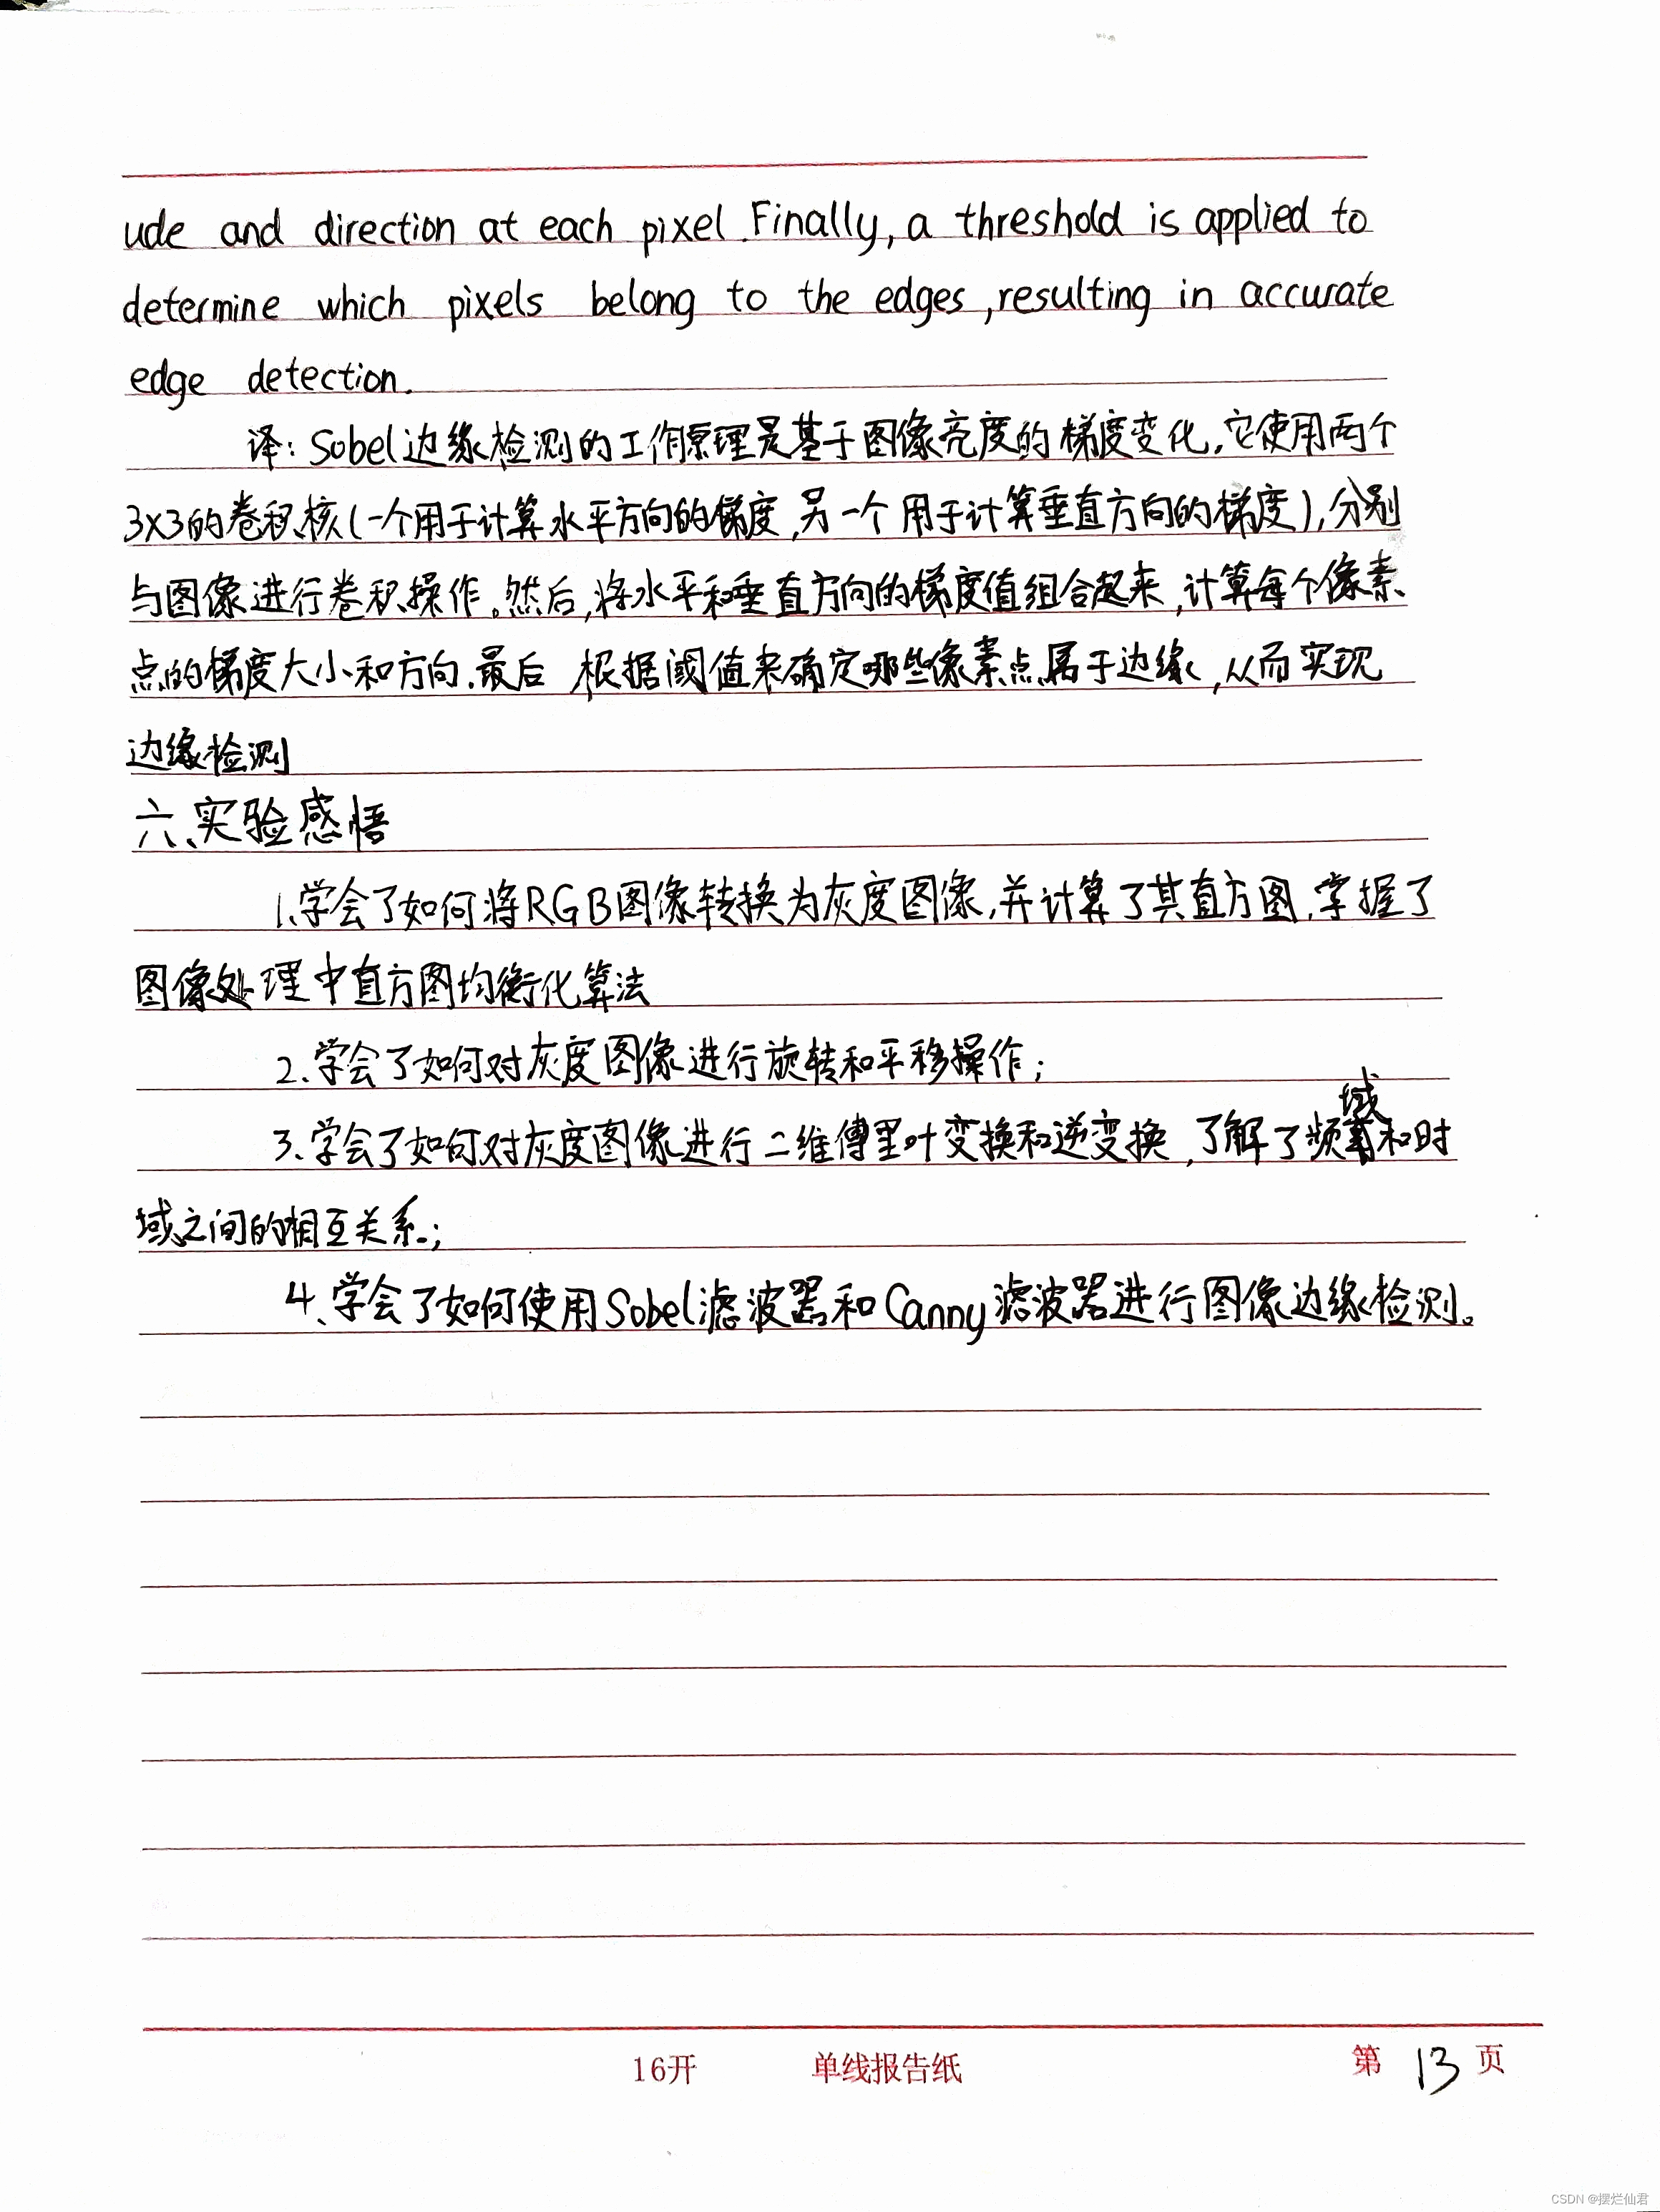 ude and direction at each pixel. Finally, a threshold is applied to
determine which pixels belong to the edges, resulting in accurate
edge detection.
译: Sobel边缘检测的工作原理是基于图像亮度的梯度变化,它使用两个
3x3的卷积核(一个用于计算水平方向的梯度,另一个用于计算垂直方向的梯度),分别
与图像进行卷积操作。然后,将水平和垂直方向的梯度值组合起来,计算每个像素
点的梯度大小和方向.最后 根据阈值来确定哪些像素点属于边缘,从而实现
边缘检测
六、实验感悟
1.学会了如何将RGB图像转换为灰度图像,并计算了其直方图,掌握了
图像处理中直方图均衡化算法
2.学会了如何对灰度图像进行旋转和平移操作;
3.学会了如何对灰度图像进行二维傅里叶变换和逆变换,了解了频域和时
域之间的相互关系;
4.学会了如何使用Sobel滤波器和Canny滤波器进行图像边缘检测。
16开 单线报告纸 第 13 页
CSDN @摆烂仙君